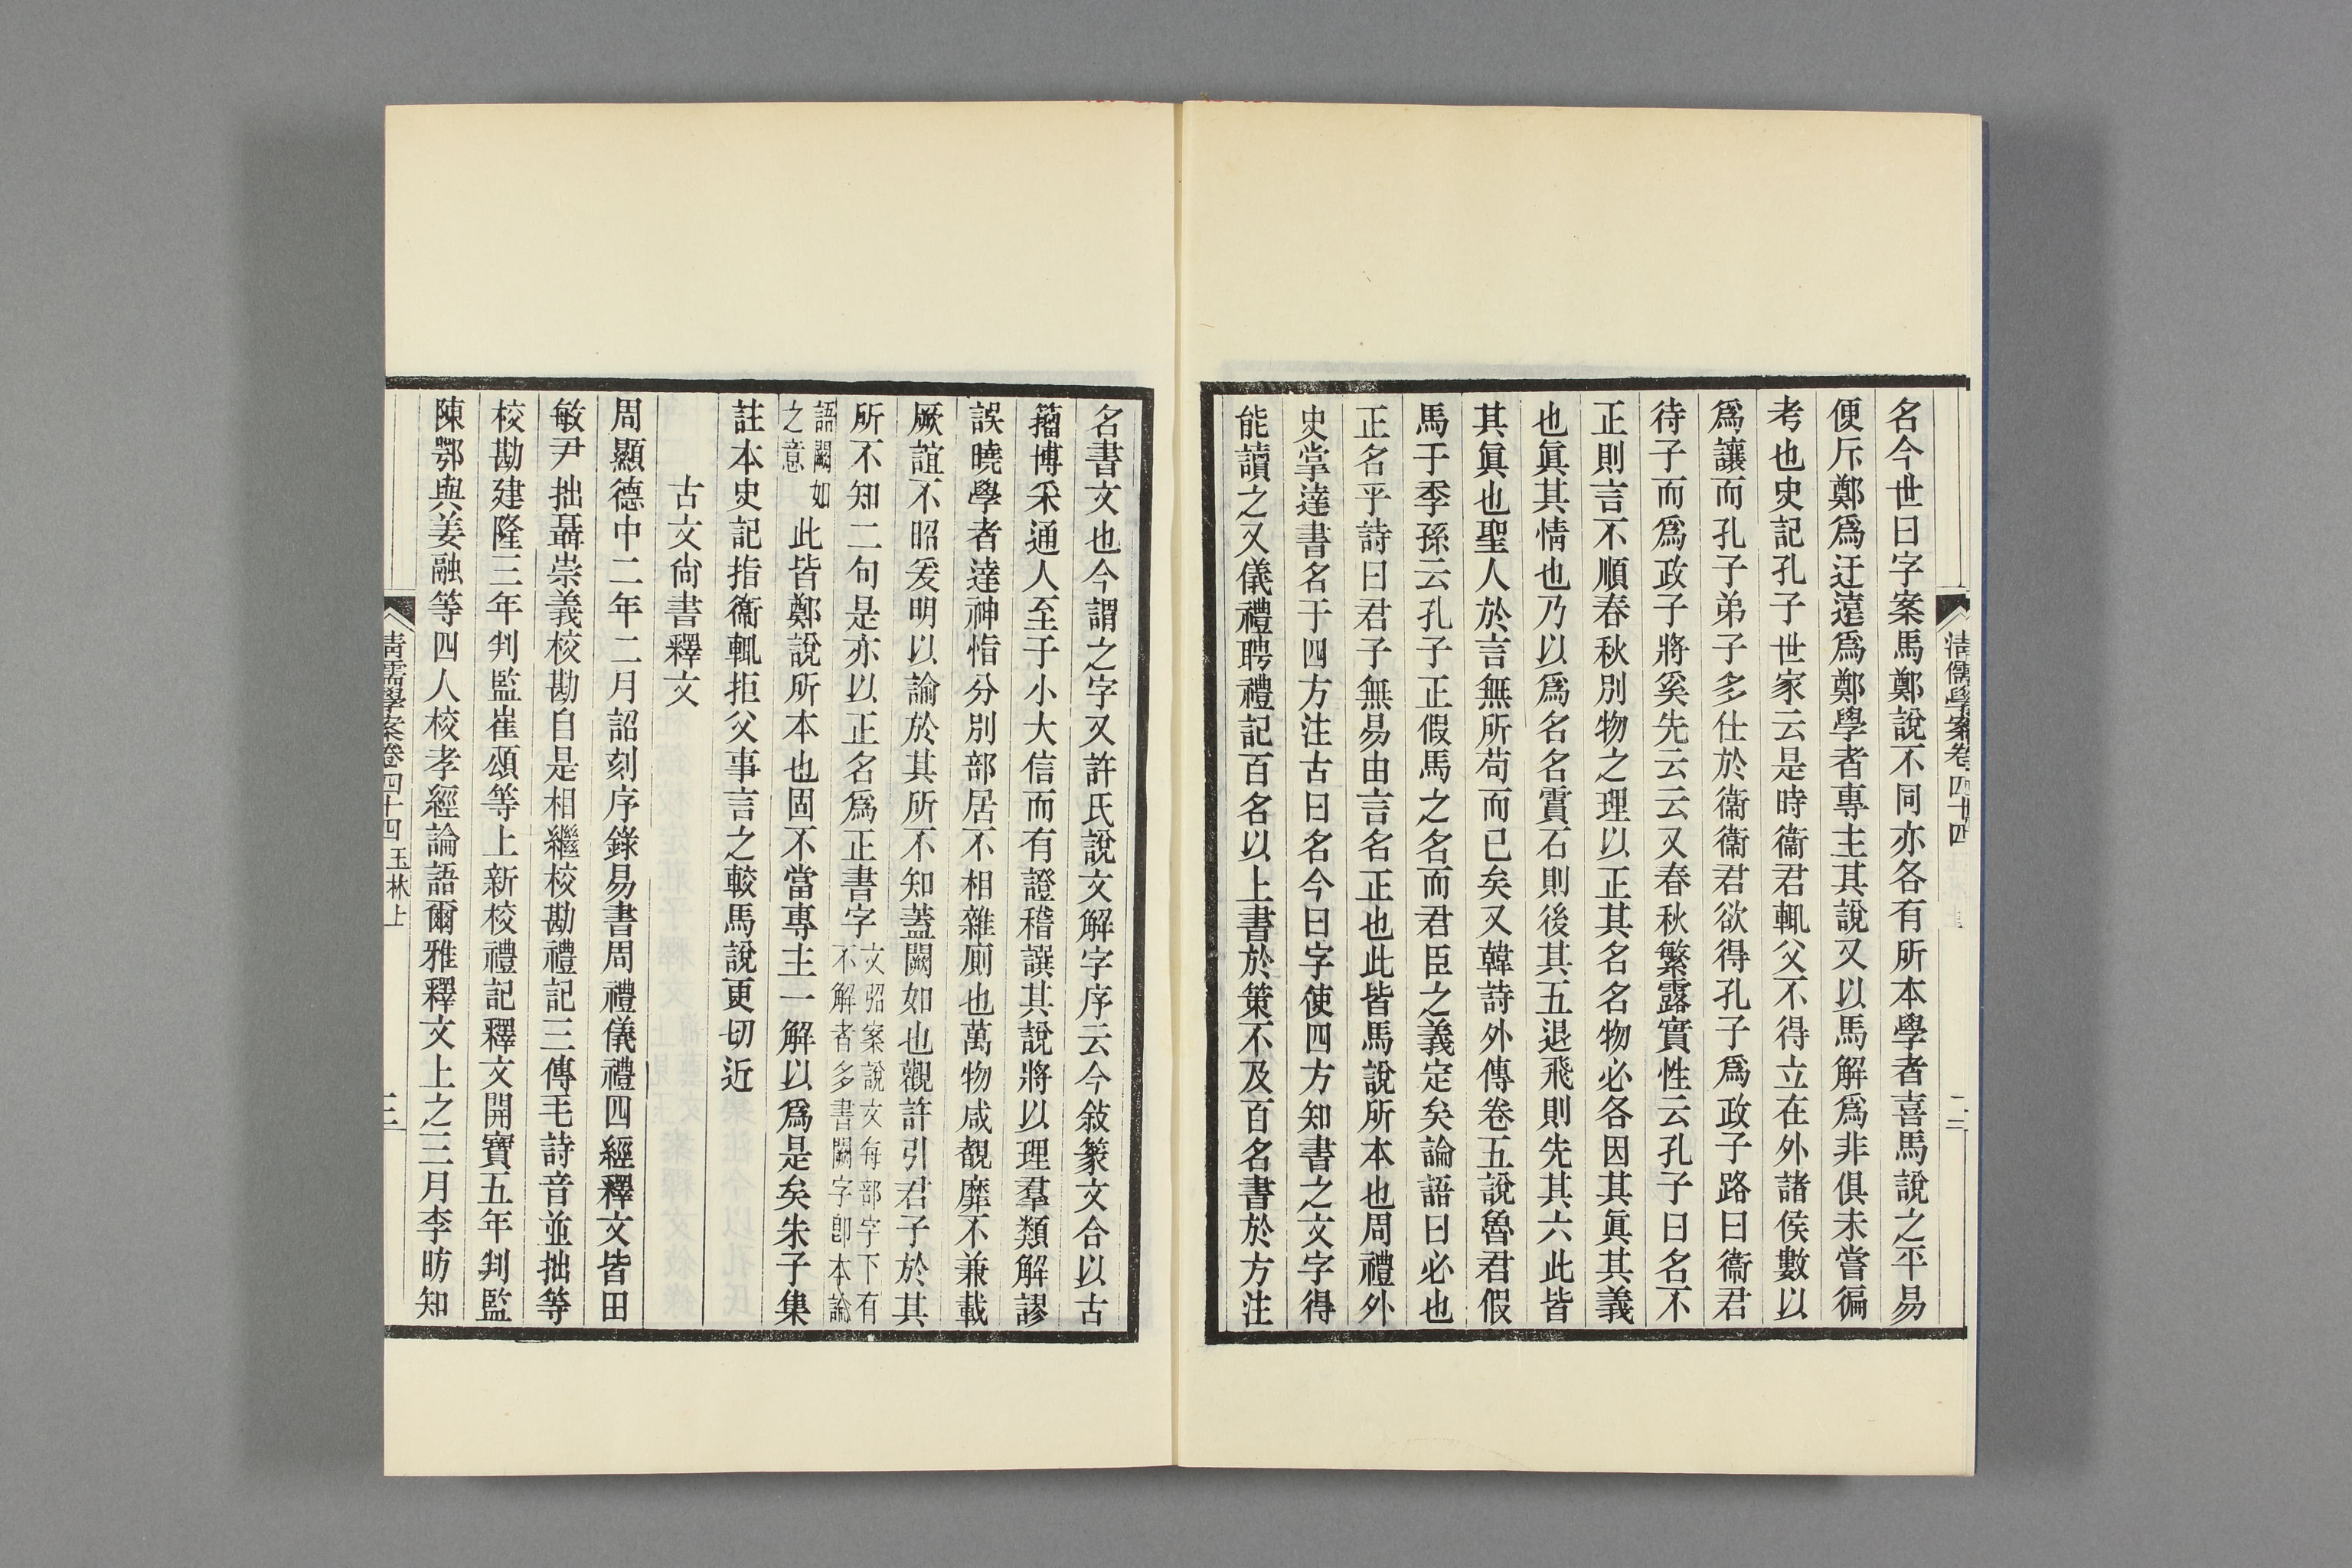 清儒學案卷四十四
二三
名今世曰字案馬鄭說不同亦各有所本學者喜馬說之平易
便斥鄭爲迂遠爲鄭學者專主其說又以馬解爲非俱未嘗徧
考也史記孔子世家云是時衞君輒父不得立在外諸侯數以
爲讓而孔子弟子多仕於衞衞君欲得孔子爲政子路曰衞君
待子而爲政子將奚先云云又春秋繁露實性云孔子曰名不
正則言不順春秋別物之理以正其名名物必各因其眞其義
也眞其情也乃以爲名名霣石則後其五退飛則先其六此皆
其眞也聖人於言無所苟而已矣又韓詩外傳卷五說魯君假
馬于季孫云孔子正假馬之名而君臣之義定矣論語曰必也
正名乎詩曰君子無易由言名正也此皆馬說所本也周禮外
史掌達書名于四方注古曰名今曰字使四方知書之文字得
能讀之又儀禮聘禮記百名以上書於策不及百名書於方注
名書文也今謂之字又許氏說文解字序云今敍篆文合以古
籀博采通人至于小大信而有證稽譔其說將以理羣類解謬
誤曉學者達神恉分別部居不相雜廁也萬物咸覩靡不兼載
厥誼不昭爰明以諭於其所不知蓋闕如也觀許引君子於其
所不知二句是亦以正名爲正書字文炤案說文每部字下有不解者多書闕字卽本論
語闕如之意此皆鄭說所本也固不當專主一解以爲是矣朱子集
註本史記指衞輒拒父事言之較馬說更切近
古文尙書釋文
周顯德中二年二月詔刻序錄易書周禮儀禮四經釋文皆田
敏尹拙聶崇義校勘自是相繼校勘禮記三傳毛詩音並拙等
校勘建隆三年判監崔頌等上新校禮記釋文開寶五年判監
陳鄂與姜融等四人校孝經論語爾雅釋文上之三月李昉知
清儒學案卷四十四 玉林上
三